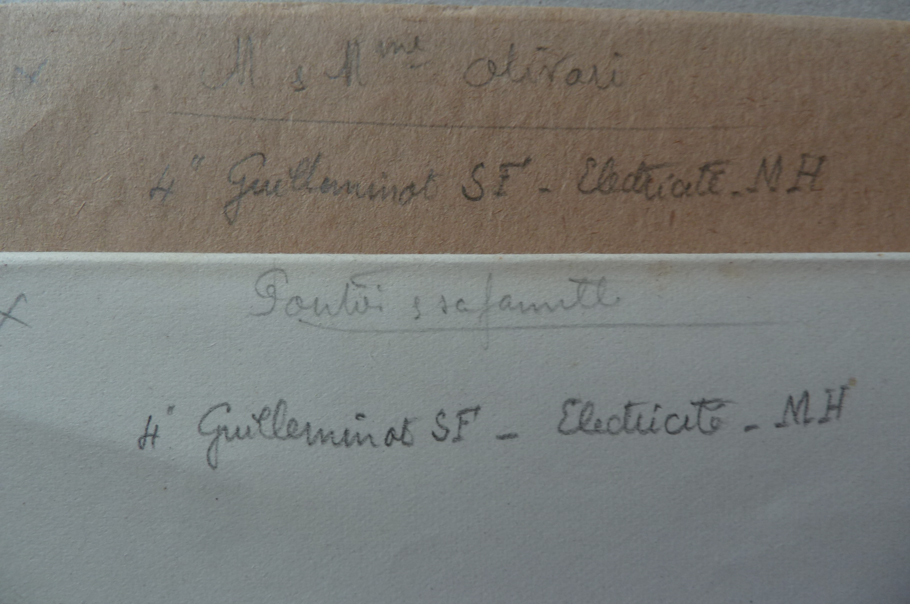 M & Mme Olivari
4" Guilleminot SF - Electricité - MH
X Pontoi & sa famille
4" Guilleminot SF - Electricité - MH